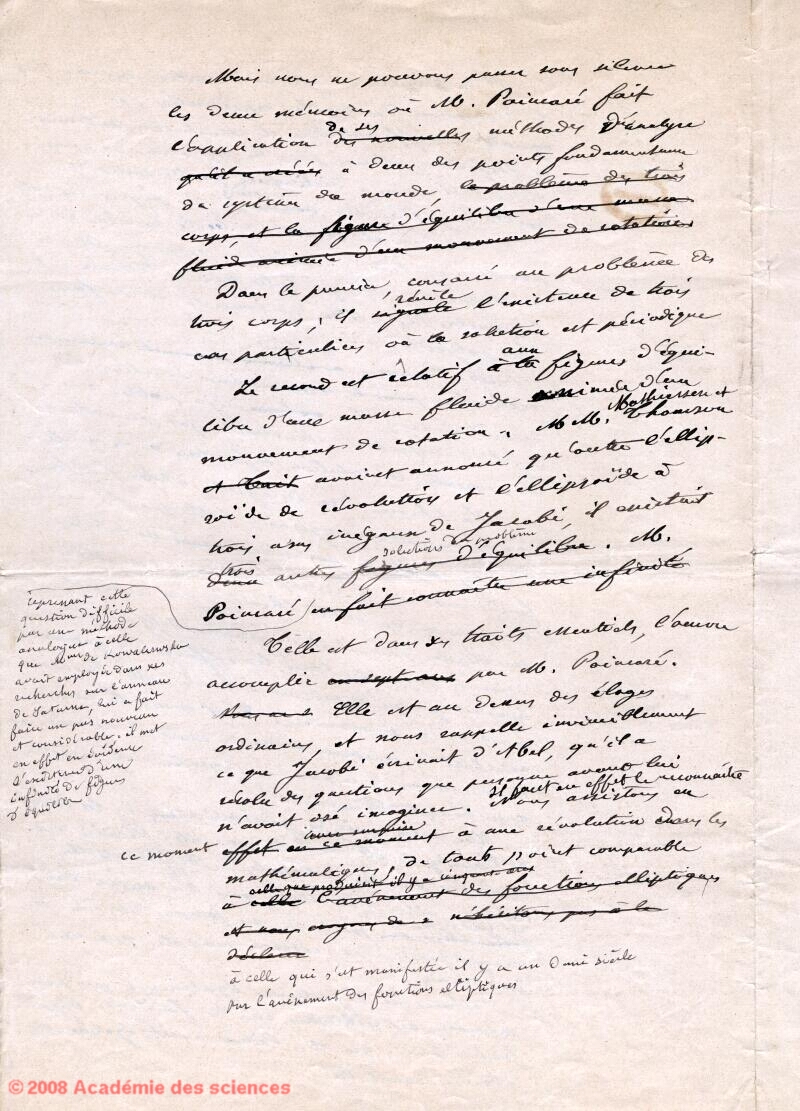 Mais nous ne pouvons passer sous silence
les deux mémoires où M. Poincaré fait
de ses
l'application des nouvelles méthodes d'analyse
qu'il a créés à deux des points fondamentaux
du système du monde, le problème des trois
corps, et la figure d'équilibre d'une masse
fluide animée d'un mouvement de rotation
Dans le premier, consacré au problème des
révèle
trois corps, il signale l'existence de trois
cas particuliers où la solution est périodique
aux
Le second est relatif à la figures d'équi-
libre d'une masse fluide animée d'un
Mathiessen et
mouvement de rotation. M M. Thomson
et Tait avaient annoncé qu'outre l'ellip-
soïde de révolution et l'ellipsoïde à
trois axes inégaux de Jacobi, il existait
solutions du problème
trois
deux autres figures d'équilibre. M.
Poincaré en fait connaître une infinité
reprenant cette
question difficile
par une méthode
analogue à celle
que Mme de Kowalewska
avait employée dans ses
recherches sur l'anneau
de Saturne, lui a fait
faire un pas nouveau
et considérable, il met
en effet en évidence
l'existence d'une
infinité de figures
d'équilibre
Telle est dans ses traits essentiels, l'œuvre
accomplie en sept ans par M. Poincaré.
Elle est au dessus des éloges
ordinaires, et nous rappelle invinciblement
ce que Jacobi écrivait d'Abel, qu'il a
résolu des questions que personne avant lui
Il faut en effet le reconnaître
n'avait osé imaginer. Nous assistons en
ce moment
effet en ce moment à une révolution dans les
mathématiques, de tout point comparable
celle que produisit il y a
à celle l'avènement des fonctions elliptiques
et nous n'hésitons pas à le
déclarer
à celle qui s'est manifestée il y a un demi siècle
par l'avènement des fonctions elliptiques
© 2008 Académie des sciences